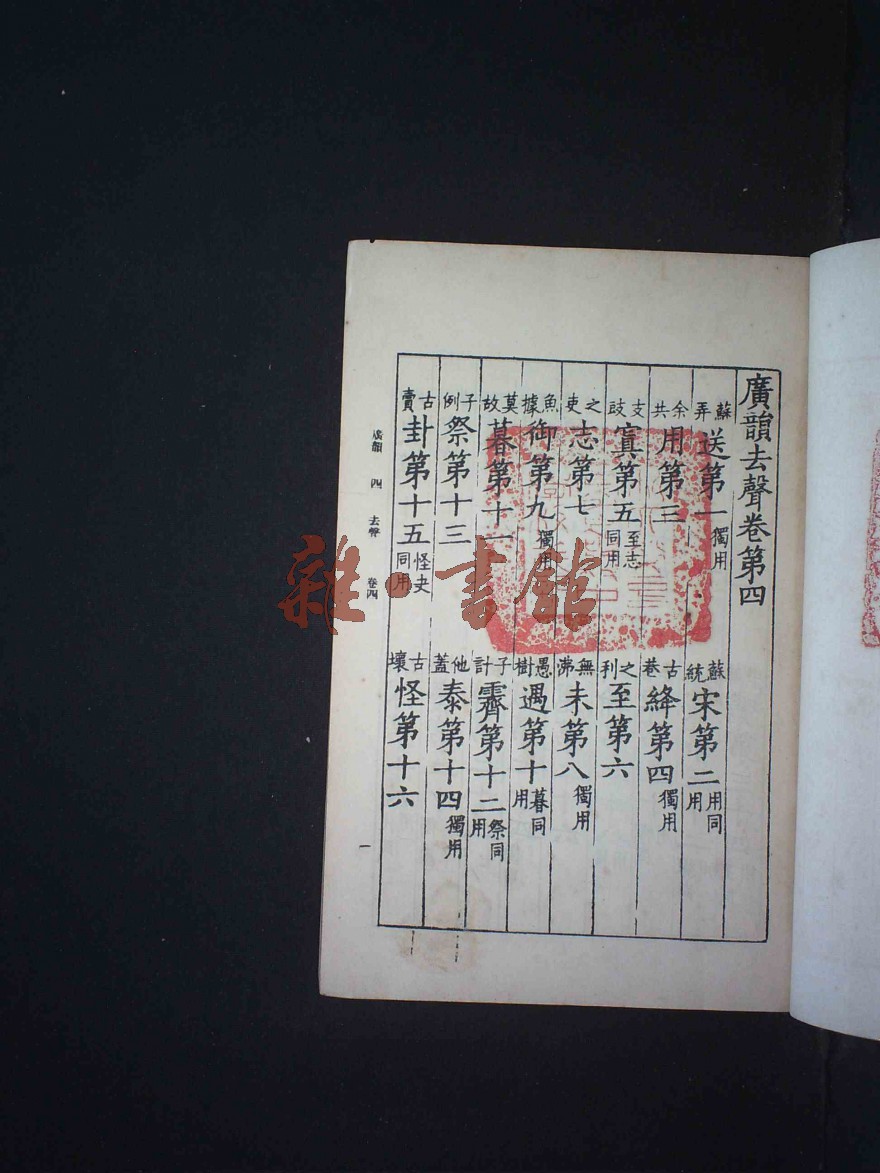 廣韻去聲卷第四
蘇弄送第一獨用 蘇統宋第二用同用
余共用第三 古巷絳第四獨用
支豉寘第五至志同用 之利至第六
之吏志第七 無沸未第八獨用
魚據御第九獨用 愚樹遇第十暮同用
莫故暮第十一 子計霽第十二祭同用
子例祭第十三 他蓋泰第十四獨用
古賣卦第十五怪夬同用 古壞怪第十六
廣韻 四 去聲 卷四
一
雜·書館